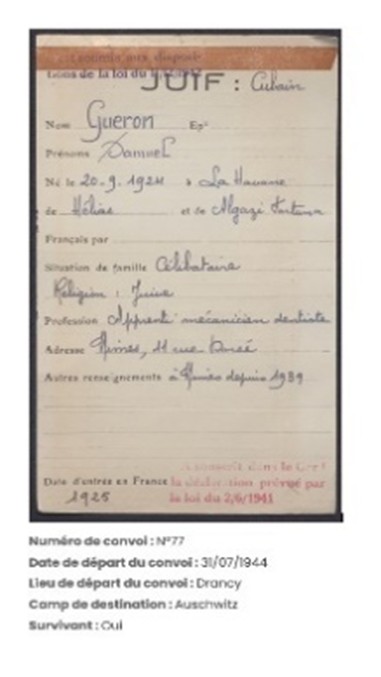 a soumis aux dispositions
tions de la loi du
JUIF : Cubain
Nom Gueron Ep.
Prénoms Samuel
Né le 20-9-1924 à La Havane
de Hélias et de Algazi Fortuna
Français par
Situation de famille Célibataire
Religion : Juive
Profession Apprenti mécanicien dentiste
Adresse Nîmes, 11 rue
Autres renseignements à Nîmes depuis 1939
Date d'entrée en France
1925
a souscrit dans le Gard
la déclaration prévue par
la loi du 2/6/1941
Numéro de convoi : N°77
Date de départ du convoi : 31/07/1944
Lieu de départ du convoi : Drancy
Camp de destination : Auschwitz
Survivant : Oui